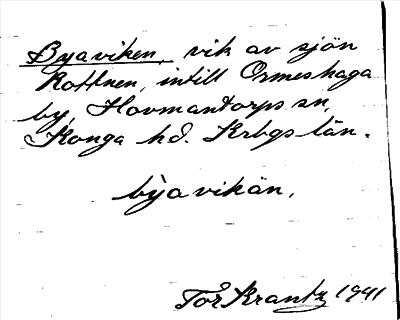 Byaviken, vik av sjön
Rottnen, intill Ormeshaga
by, Hovmantorps sn,
Konga hd. Krbgs län.
byavikän,
Tor Krantz 1941